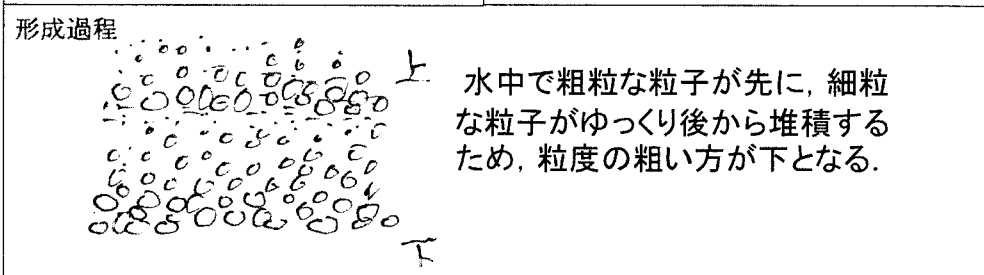 形成過程
上
水中で粗粒な粒子が先に，細粒
な粒子がゆっくり後から堆積する
ため，粒度の粗い方が下となる．
下